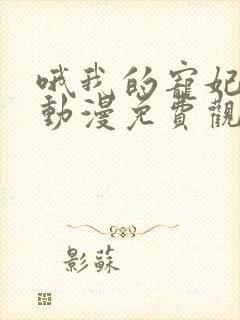 哦我的寵妃
動漫免費觀
影蘇